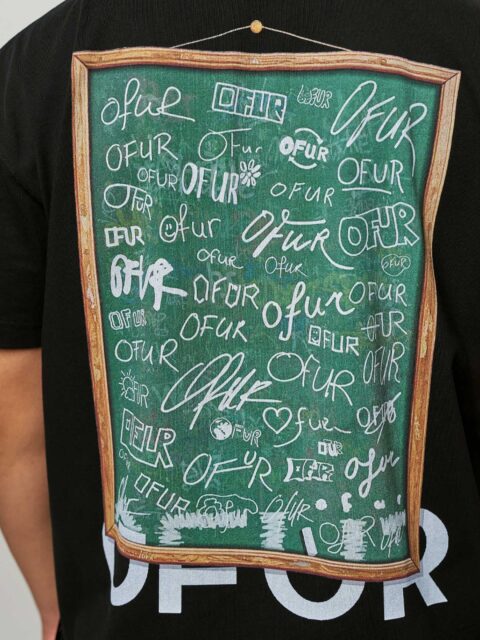 ofur OFUR OFUR OFUR
OFUR OFur OFUR
OFUR OFUR OFUR OFUR
OFUR
OFUR ofur OFUR OFUR
OFUR OFUR OFUR
OFUR OFUR ofur OFUR
OFUR OFUR OFUR OFUR
OFUR OFUR OFUR
OFUR OFUR OFUR
OFUR fur
OFUR OFUR OFUR
OFUR OFUR ofur
OFUR OFUR
OFUR